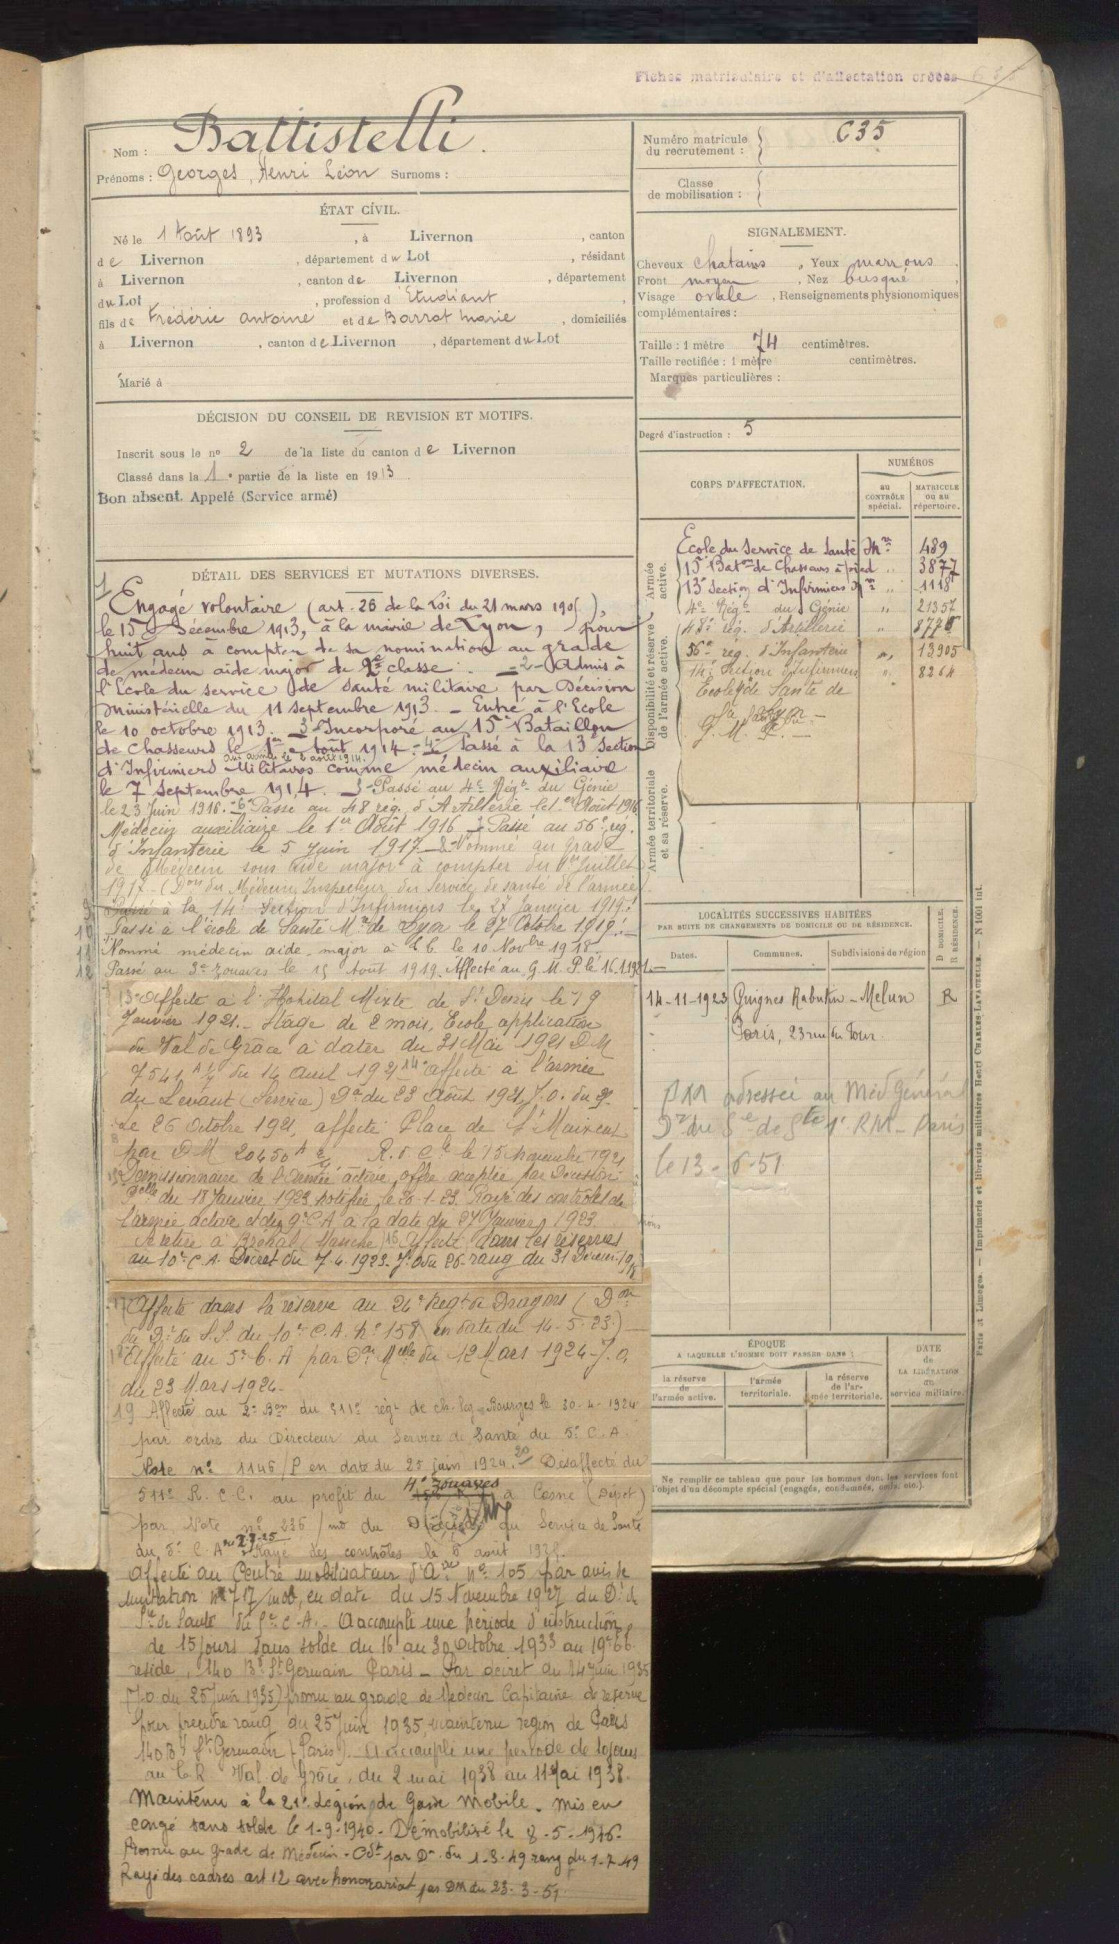 Fiches matriculaire et d'affectation créées
Battistelli.
Nom :
Prénoms : Georges, Henri Léon Surnoms :
ÉTAT CIVIL.
Né le 1 Août 1893, à Livernon, canton
de Livernon, département du Lot, résidant
à Livernon, canton de Livernon, département
du Lot, profession d'Etudiant,
fils de Frédéric Antoine et de Barrat Marie, domiciliés
à Livernon, canton de Livernon, département du Lot
Marié à
DÉCISION DU CONSEIL DE REVISION ET MOTIFS.
Inscrit sous le no 2 de la liste du canton de Livernon
Classé dans la 1e partie de la liste en 1913
Bon absent. Appelé (Service armé)
DÉTAIL DES SERVICES ET MUTATIONS DIVERSES.
1 Engagé volontaire (art. 26 de la Loi du 21 mars 1905),
le 15 Décembre 1913, à la mairie de Lyon, pour
huit ans à compter de sa nomination au grade
de médecin aide major de 2e classe. - 2 - Admis à
l'Ecole du service de santé militaire par Décision
Ministérielle du 11 septembre 1913. - Entré à l'Ecole
le 10 octobre 1913. 3 - Incorporé au 15e Bataillon
de Chasseurs le 1er août 1914 - 4 - Passé à la 13e Section
d'Infirmiers Militaires comme médecin auxiliaire
le 7 septembre 1914. 5 - Passé au 4e Régt du Génie
le 23 Juin 1916. - 6 - Passé au 48 rég. d'Artillerie le 1er Août 1916
Médecin auxiliaire le 1er Août 1916 7 Passé au 56e rég.
d'Infanterie le 5 Juin 1917 8 - Nommé au grade
de Médecin sous aide major à compter du 1er Juillet
1917 - (Don du Médecin Inspecteur du Service de santé de l'armée).
9 Passé à la 14e Section d'Infirmiers le 27 Janvier 1919.
10 Passé à l'école de Santé Mre de Lyon le 27 Octobre 1919. -
11 Nommé médecin aide major à T.T. le 10 Novbre 1918.
12 Passé au 3e zouaves le 15 Août 1919. Affecté au G. M. P. le 16.1.1921. -
13 - Affecté à l'Hôpital Mixte de St Denis le 19
Janvier 1921. - Stage de 2 mois, Ecole application
du Val de Grâce à dater du 31 Mai 1921 D M
7541 du 14 Avril 1921 14 - affecté à l'armée
du Levant (Service) Don du 23 Août 1921, J.O. du
Le 26 Octobre 1921, affecté Place de St Maixent
par D M 20450 le 15 novembre 1921
15 Démissionnaire de l'armée active, offre acceptée par Décision
Pelle du 18 Janvier 1923 notifiée le 20-1-23. Rayé des contrôles de
l'armée active et du 9e C.A. à la date du 27 Janvier 1923
Se retire à Bréhal (Manche) 16 Affecté dans les réserves
au 10e C.A. Décret du 7.4.1923. J.O. du 20 - rang du 31 Décem.
17 Affecté dans la réserve au 24e Régt de Dragons (Don
du Dr du S.S. du 10e C.A. No 158 en date du 14-5-23.)
18 Affecté au 5e C.A par Don Mlle du 12 Mars 1924 - J.O.
du 23 Mars 1924 -
19 Affecté au 2e Bon du 511e régt de ch. lég. Bourges le 30-4-1924
par ordre du Directeur du Service de Santé du 5e C.A.
Note no 1145/P en date du 25 juin 1924. 20 Désaffecté du
511e R. C. C. au profit du 4e Zouaves à Cosne (Dépôt)
par Note no 236/mo du Directeur du Service de Santé
du 5e C. A. Rayé des contrôles le août
Affecté au Centre mobilisateur d'Are No 105 par avis de
mutation No 717/mob, en date du 15 Novembre 1927 du Dr du
Sce de Santé du 5e C.A. - A accompli une période d'instruction
de 15 jours sans solde du 16 au 30 octobre 1933 au
réside, 140 Bd St Germain Paris - Par décret du 14 Juin 1935
(J.O. du 25 Juin 1935) promu au grade de Médecin Capitaine de réserve
pour prendre rang du 25 Juin 1935 maintenu région de Paris
140 Bd St Germain (Paris). A accompli une période de 10 jours
au C.R. Val de Grâce, du 2 mai 1938 au 11 Mai 1938.
Maintenu à la 21e Légion de Garde Mobile. Mis en
congé sans solde le 1-9-1940 - Démobilisé le 8-5-1946.
Promu au grade de Médecin - Cdt par Dn du 1-3-49 rang du 1-7-49
Rayé des cadres art 12 avec honorariat par DM du 23-3-51
Numéro matricule du recrutement : 635
Classe de mobilisation :
SIGNALEMENT.
Cheveux chatains, Yeux marrons,
Front moyen, Nez busqué,
Visage ovale, Renseignements physionomiques
complémentaires :
Taille : 1 mètre 74 centimètres.
Taille rectifiée : 1 mètre centimètres.
Marques particulières :
Degré d'instruction : 5
CORPS D'AFFECTATION.
NUMÉROS
au CONTRÔLE spécial.
MATRICULE ou au répertoire.
Armée active.
Ecole du Service de Santé Mre 489
15e Baton de Chasseurs à pied " 3877
13e Section d'Infirmiers Mres " 1118
Disponibilité et réserve de l'armée active.
4e Régt du Génie " 21357
48e rég. d'Artillerie " 8776
56e reg. d'Infanterie " 13905
14e Section d'Infirmiers " 8264
Ecole de Santé de
G. M. P. -
Armée territoriale et sa réserve.
LOCALITÉS SUCCESSIVES HABITÉES
PAR SUITE DE CHANGEMENTS DE DOMICILE OU DE RÉSIDENCE.
D DOMICILE.
R RÉSIDENCE.
Dates.
Communes.
Subdivisions de région
14-11-1923 Guignes Rabutin - Melun R
Paris, 23 rue du Four
DM adressée au Méd Général
Dr du Sce de Sté 1e RM - Paris
le 13-6-51
ÉPOQUE
A LAQUELLE L'HOMME DOIT PASSER DANS :
la réserve de l'armée active.
l'armée territoriale.
la réserve de l'armée territoriale.
DATE de LA LIBÉRATION du service militaire.
Ne remplir ce tableau que pour les hommes dont les services font
l'objet d'un décompte spécial (engagés, condamnés, omis, etc.).
Paris et Limoges. — Imprimerie et librairie militaires Henri CHARLES-LAVAUZELLE.